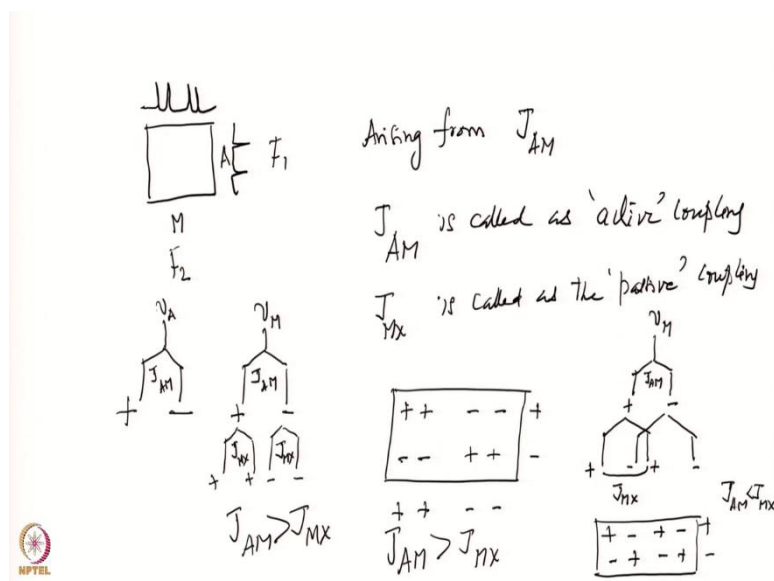 A F₁
M
F₂
Arising from J_AM
J_AM is called as 'active' coupling
J_MX is called as the 'passive' coupling
ν_A
J_AM
+ −
ν_M
J_AM
+ −
J_MX J_MX
+ + − −
J_AM > J_MX
+ + − − +
− − + + −
+ + − −
J_AM > J_MX
ν_M
J_AM
+ −
+ − + −
J_MX
J_AM < J_MX
+ − + − +
− + − + −
NPTEL